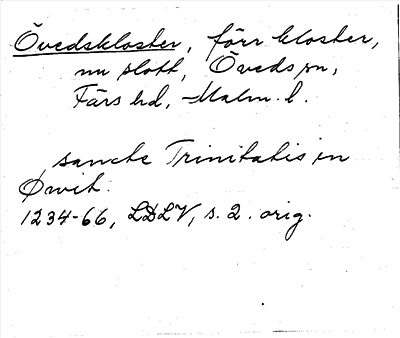 Övedskloster, förr kloster,
nu slott, Öveds sn,
Färs hd, Malm. l.
sancte Trinitatis in
Øwit.
1234-66, LDLV, s. 2. orig.